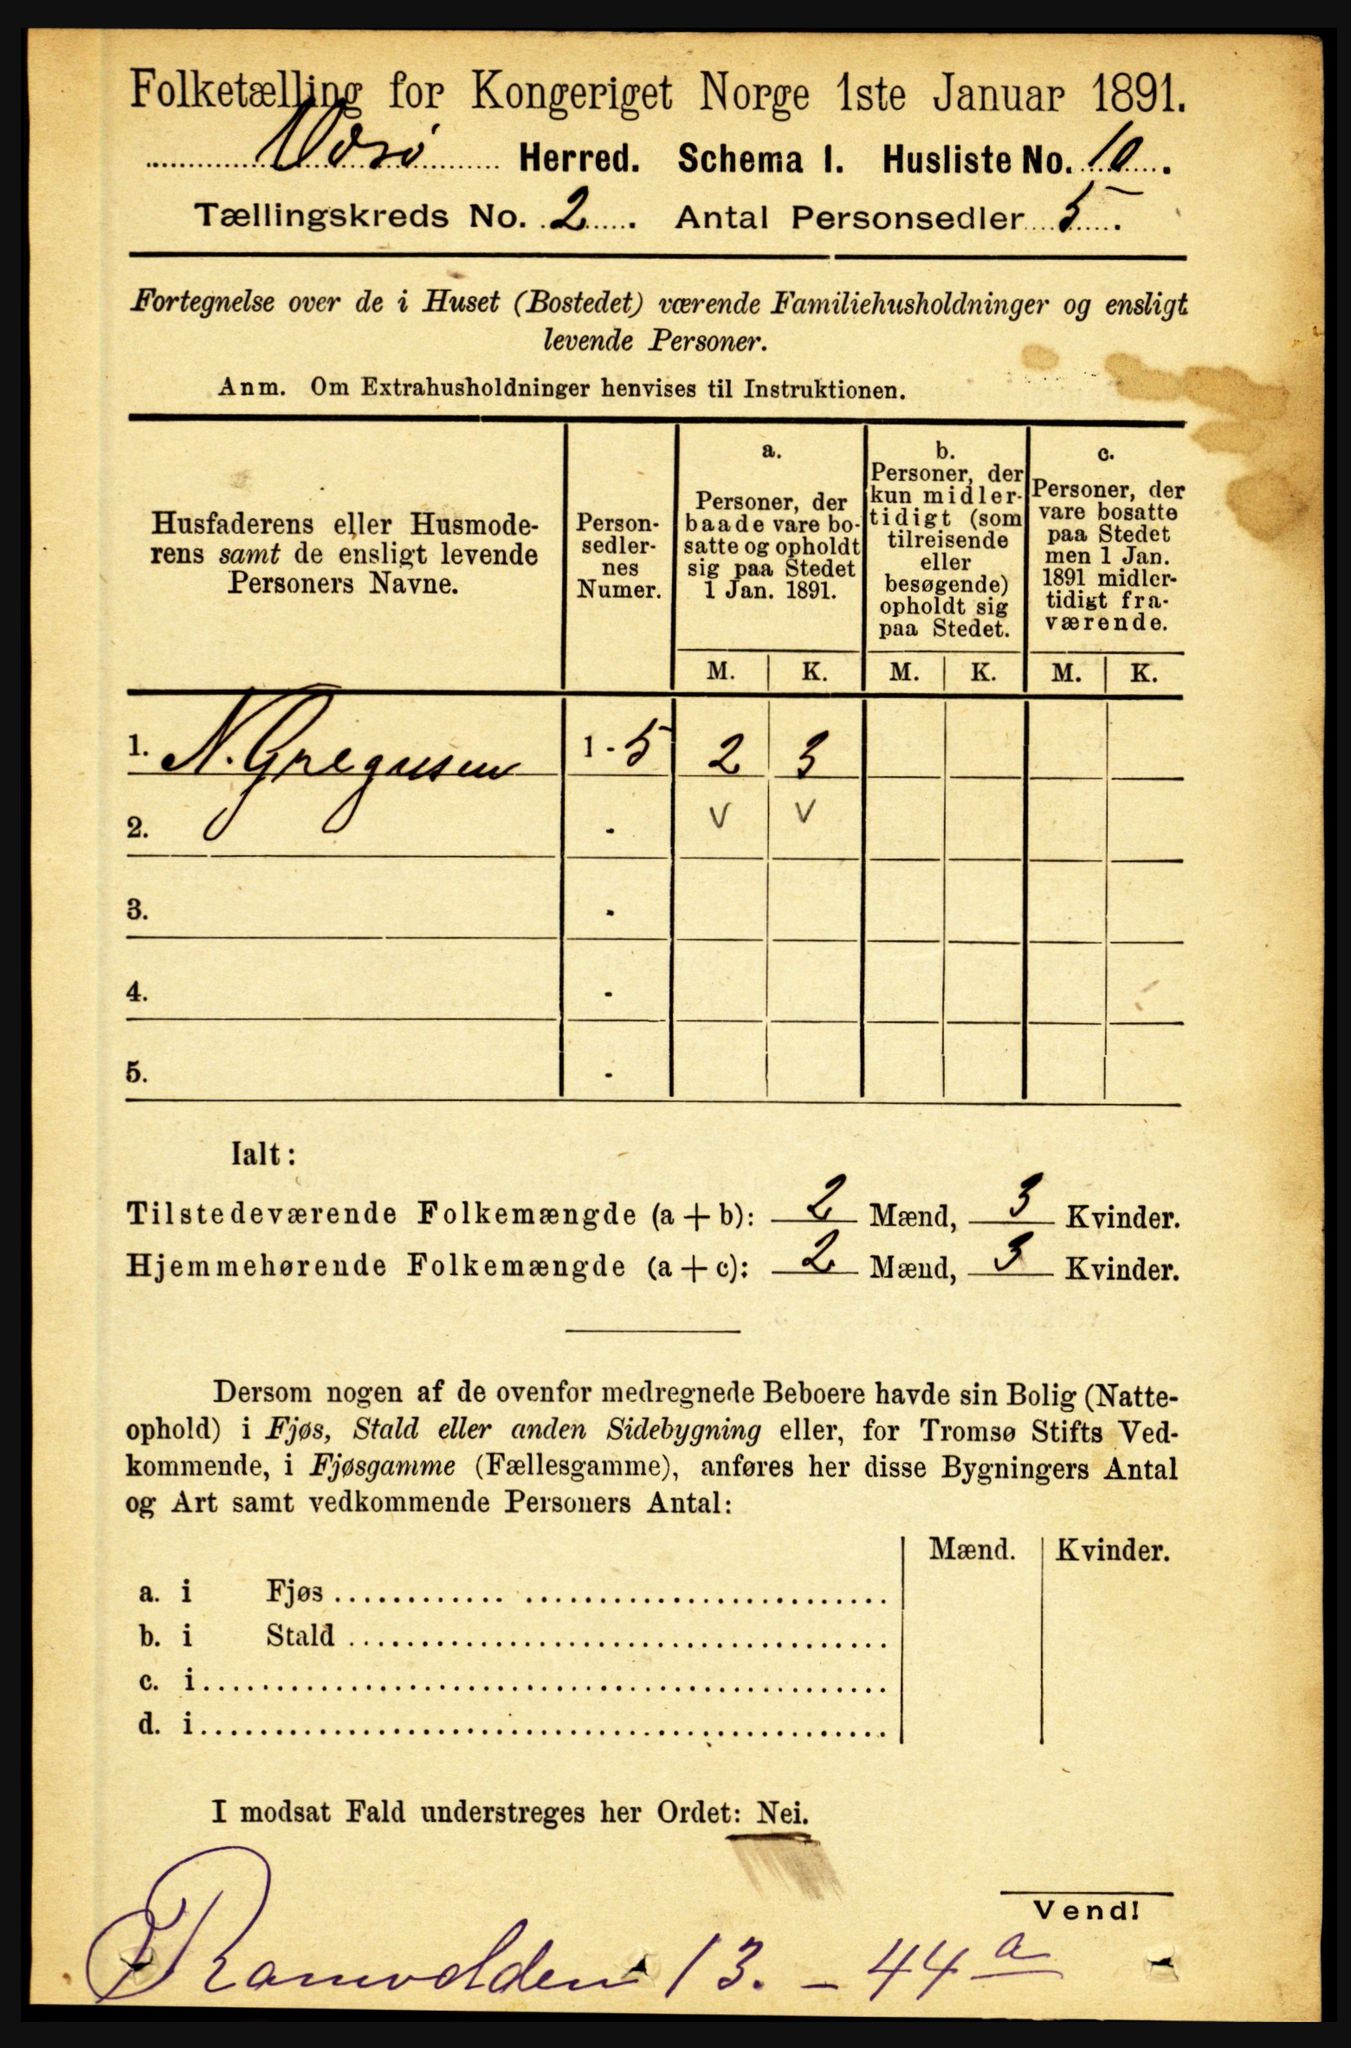 Folketælling for Kongeriget Norge 1ste Januar 1891.
Værø Herred. Schema I. Husliste No. 10.
Tællingskreds No. 2. Antal Personsedler 5.
Fortegnelse over de i Huset (Bostedet) værende Familiehusholdninger og ensligt
levende Personer.
Anm. Om Extrahusholdninger henvises til Instruktionen.
Husfaderens eller Husmode-
rens samt de ensligt levende
Personers Navne.
Person-
sedler-
nes
Numer.
a.
Personer, der
baade vare bo-
satte og opholdt
sig paa Stedet
1 Jan. 1891.
b.
Personer, der
kun midler-
tidigt (som
tilreisende
eller
besøgende)
opholdt sig
paa Stedet.
c.
Personer, der
vare bosatte
paa Stedet
men 1 Jan.
1891 midler-
tidigt fra-
værende.
M. K. M. K. M. K.
1. N. Gregusen 1-5 2 3
2. . v v
3. .
4. .
5. .
Ialt:
Tilstedeværende Folkemængde (a+b): 2 Mænd, 3 Kvinder.
Hjemmehørende Folkemængde (a+c): 2 Mænd, 3 Kvinder.
Dersom nogen af de ovenfor medregnede Beboere havde sin Bolig (Natte-
ophold) i Fjøs, Stald eller anden Sidebygning eller, for Tromsø Stifts Ved-
kommende, i Fjøsgamme (Fællesgamme), anføres her disse Bygningers Antal
og Art samt vedkommende Personers Antal:
Mænd. Kvinder.
a. i Fjøs
b. i Stald
c. i
d. i
I modsat Fald understreges her Ordet: Nei.
Vend!
13. - 44 a